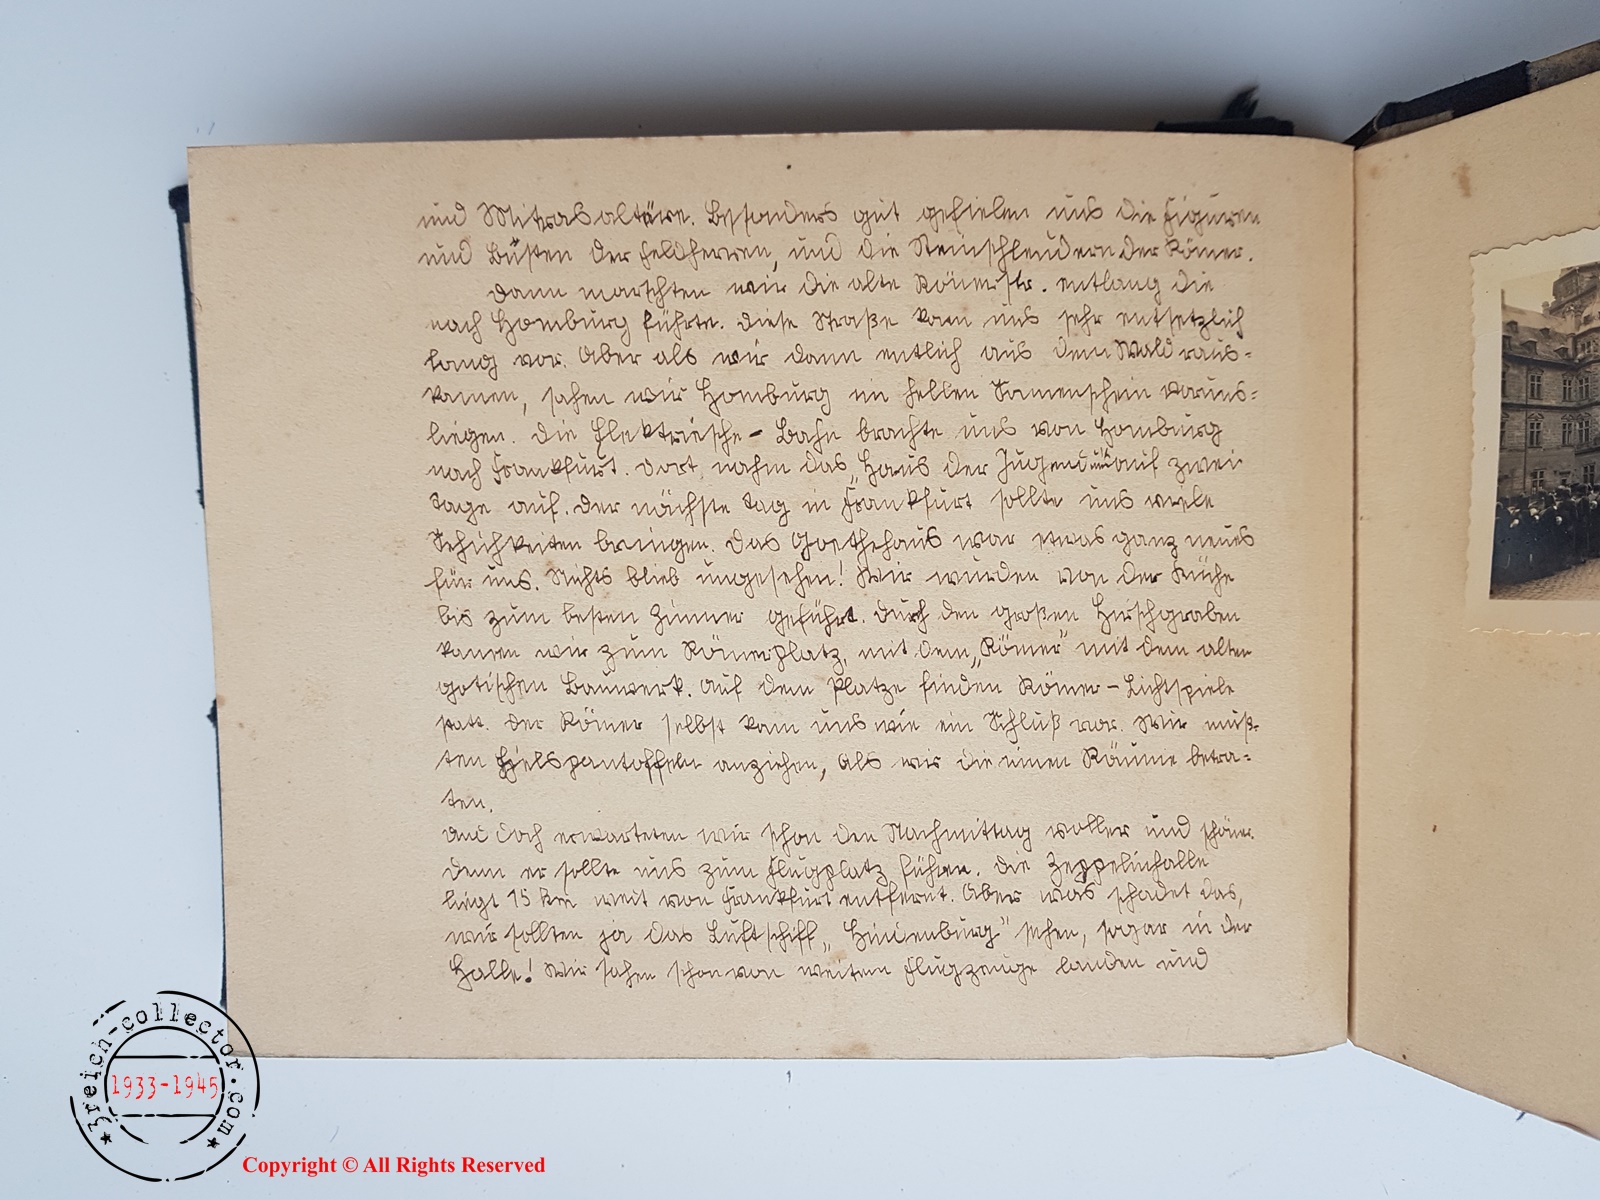 und Mitrasaltäre. Besonders gut gefielen uns die Figuren
und Büsten der Feldherren, und die Steinschleudern der Römer.
Dann marschten wir die alte Römerstr. entlang die
nach Homburg führte. Diese Straße kam uns sehr entsetzlich
lang vor. Aber als wir dann entlich aus dem Wald raus-
kamen, sahen wir Homburg im hellen Sonnenschein voruns-
liegen. Die Elektriesche-Bahn brachte uns von Homburg
nach Frankfurt. Dort nahm das „Haus der Jugend uns auf zwei
Tage auf. Der nächste Tag in Frankfurt sollte uns viele
bringen. Das Goethehaus war etwas ganz neues
für uns. Nichts blieb ungesehen! Wir wurden von der Küche
bis zum besten Zimmer geführt. Durch den großen Hirschgraben
kamen wir zum Römerplatz, mit dem „Römer" mit dem alten
gotischen Bauwerk. Auf dem Platze finden Römer-Lichtspiele
statt. Der Römer selbst kam uns wie ein Schluß vor. Wir muß-
ten anziehen, als wir die Räume betra-
ten.
Und doch erwarteten wir schon den Nachmittag voller und schöner.
Denn er sollte uns zum Flugplatz führen. Die Zeppelinhalle
liegt 15 km weit von Frankfurt entfernt. Aber was schadet das,
wir sollten ja das Luftschiff „Hindenburg" sehen, sogar in der
Halle! Wir sahen schon von weitem Flugzeuge landen und
3reich-collector.com
1933-1945
Copyright © All Rights Reserved